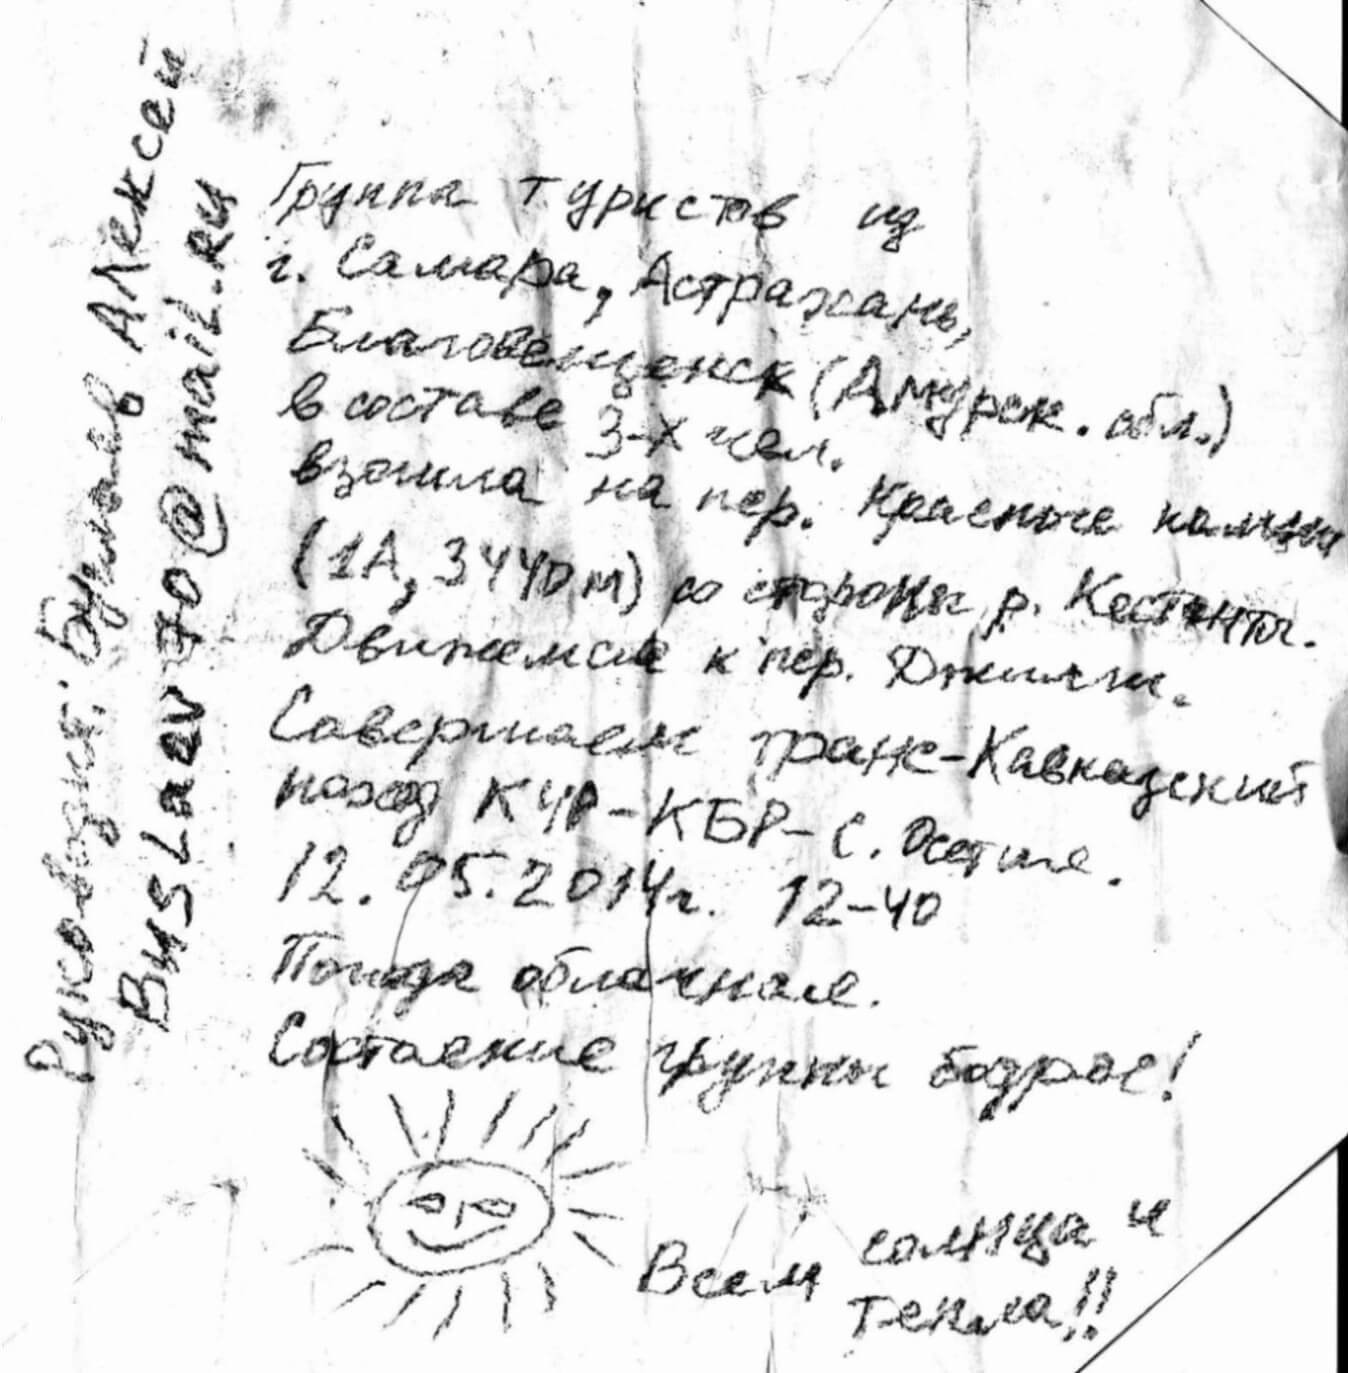 Группа туристов из
г. Самара, Астрахань,
Благовещенск (Амурск. обл.)
в составе 3-х чел.
взошла на пер. Красные камни
(1А, 3440м) со стороны р. Кестанты.
Движемся к пер. Джилги.
Совершаем транс-Кавказский
поход КЧР-КБР-С. Осетия.
12.05.2014г. 12-40
Погода облачная.
Состояние группы бодрое!
Всем солнца и
тепла!!
Руководит: Буслаев Алексей
BUSLaev70@mail.RU